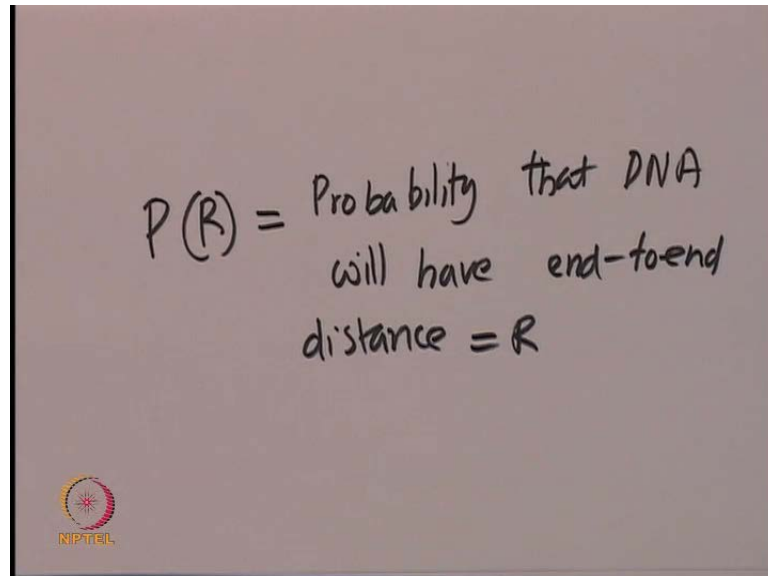 P(R) = Probability that DNA
will have end-to-end
distance = R
NPTEL